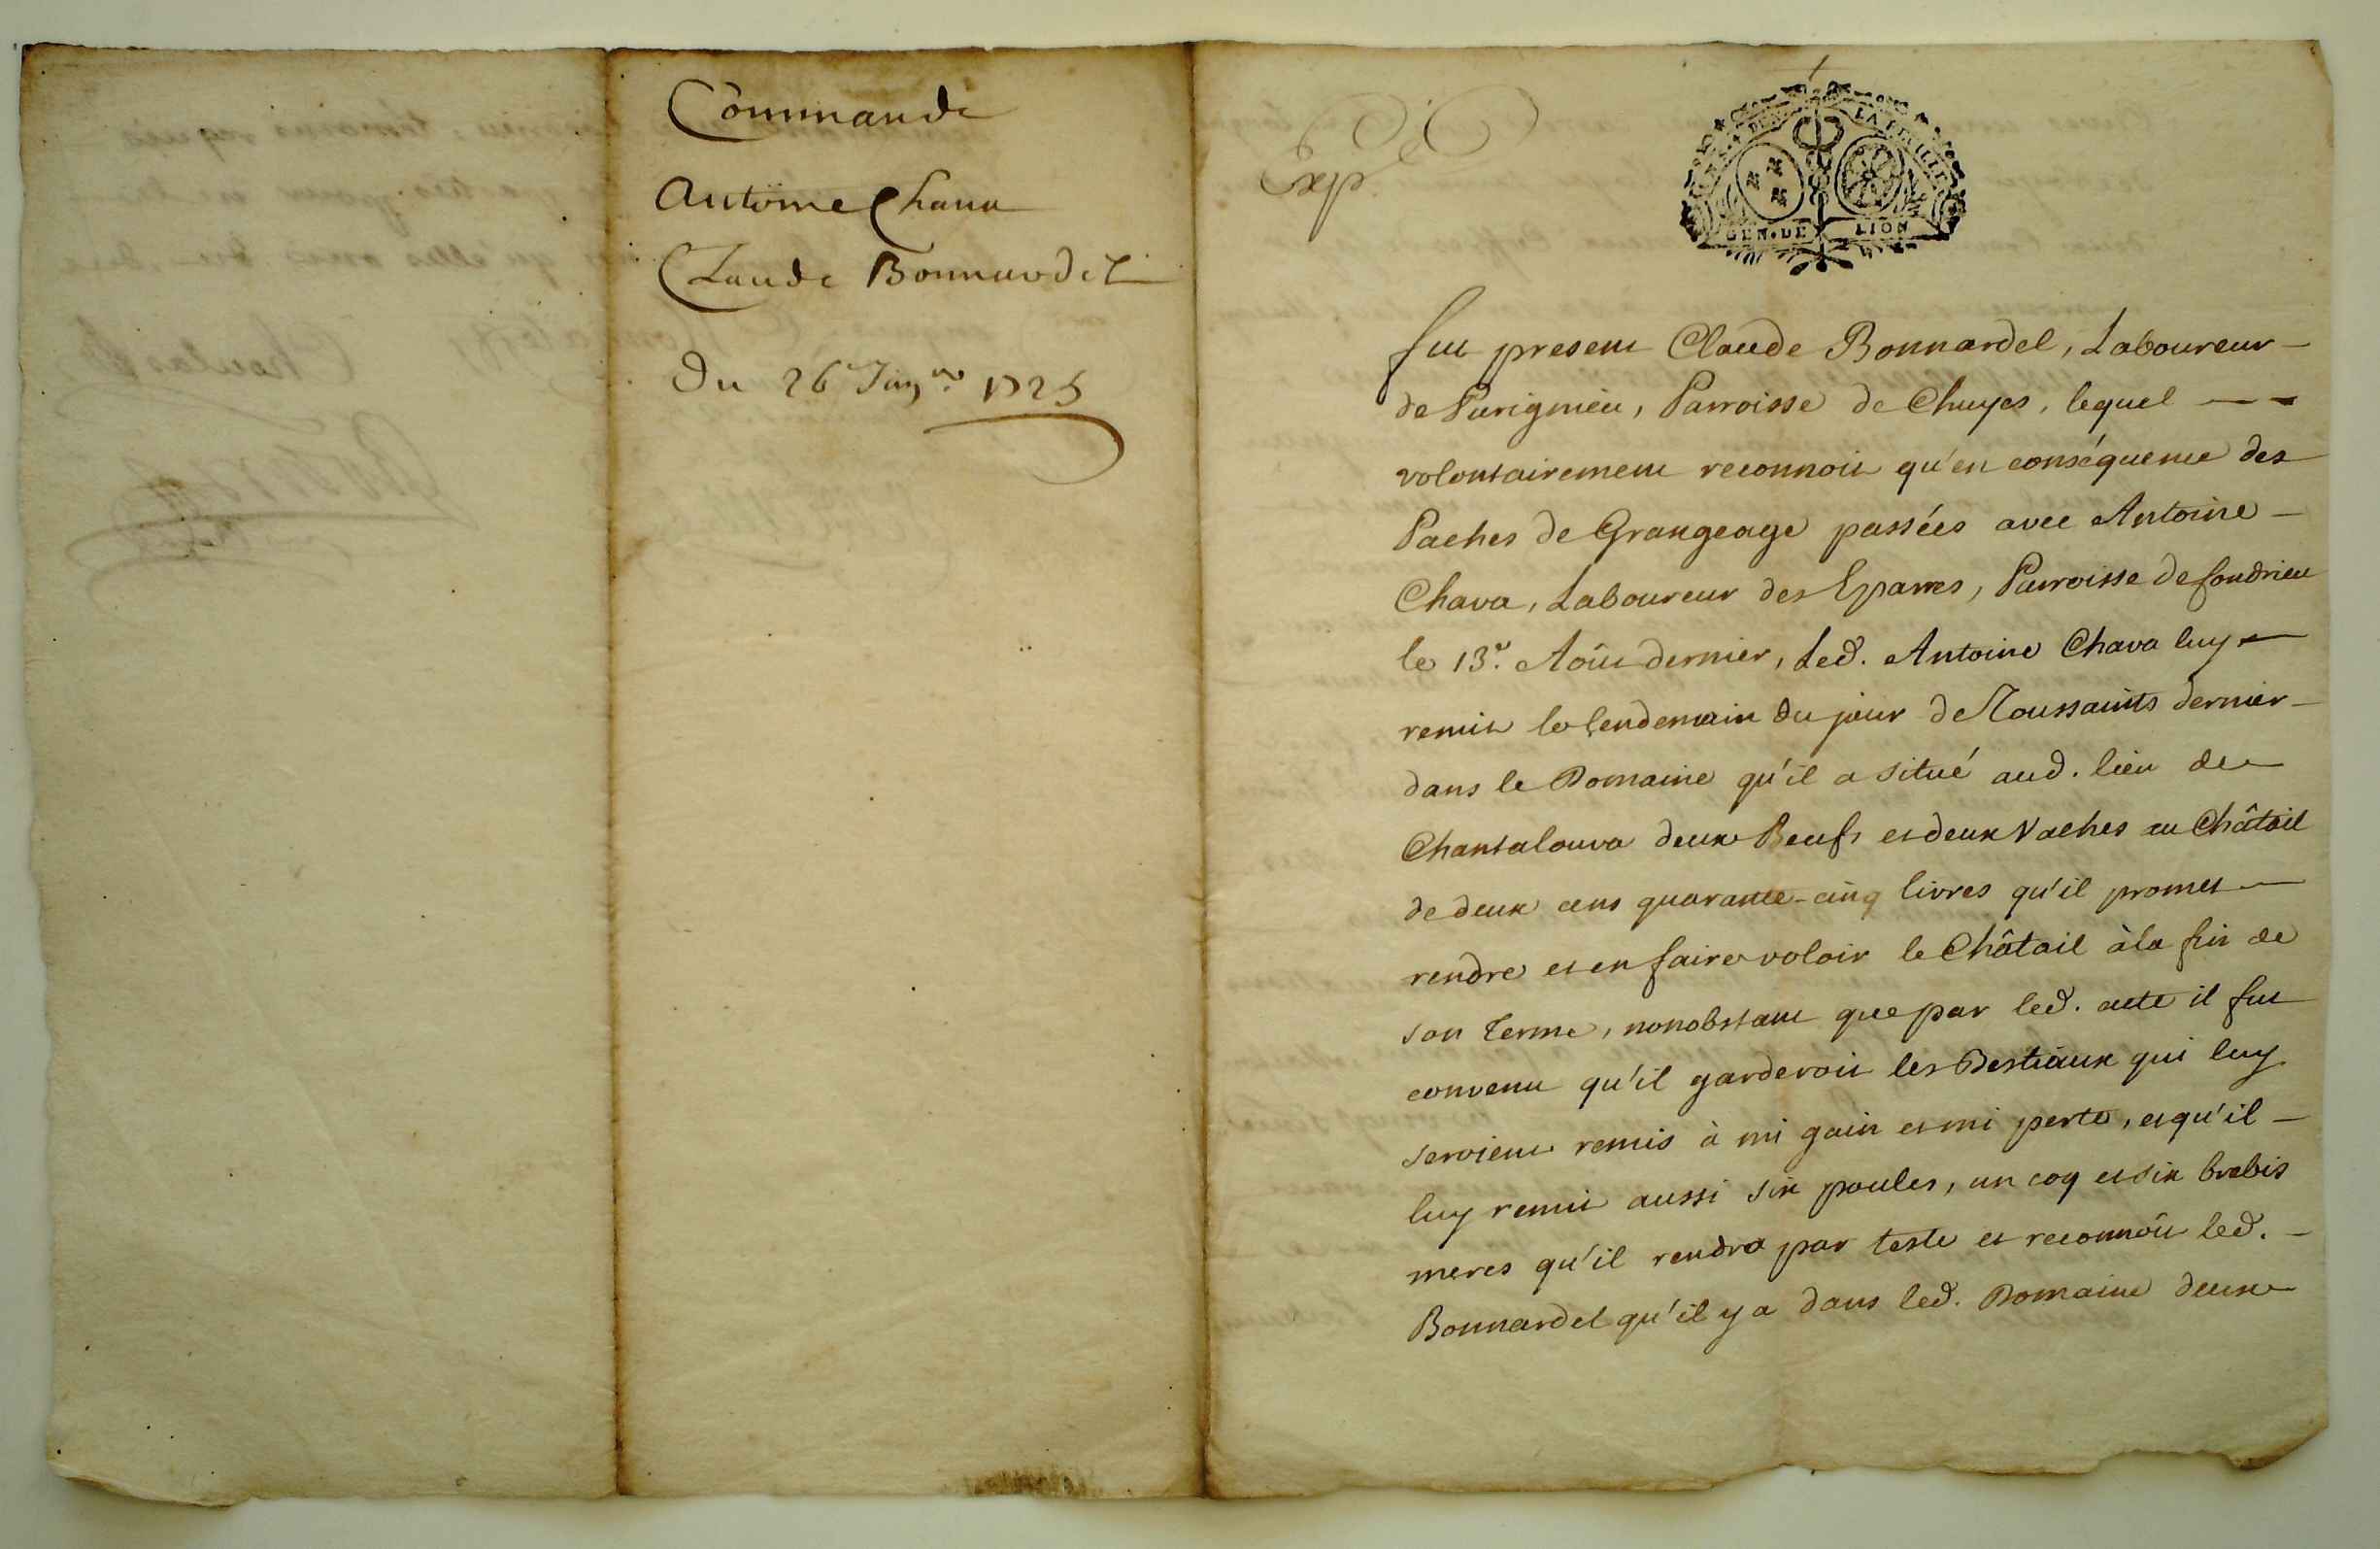 Commande
Antoine Chava
Claude Bonnardel
Du 26e Janv.re 1725
Exp.
GEN. DE LION
fut present Claude Bonnardel, Laboureur
de Purignieu, Parroisse de Chuyes, lequel
volontairement reconnoit qu'en conséquence des
Paches de Grangeage passées avec Antoine
Chava, Laboureur des Eparres, Parroisse de Condrieu
le 13e. Aoüt dernier, Led. Antoine Chava luy
remit le lendemain du jour de Toussaints dernier
dans le Domaine qu'il a situé aud. lieu de
Chantalouva deux Beufs et deux Vaches au Châtail
de deux cens quarante-cinq livres qu'il promet
rendre et en faire valoir le Châtail à la fin de
son terme, nonobstant que par led. acte il fut
convenu qu'il garderoit les Bestiaux qui luy
seroient remis à mi gain et mi perte, et qu'il
luy remit aussi six poules, un coq et six brebis
meres qu'il rendra par teste et reconnoît led.
Bonnardel qu'il y a dans led. Domaine deux